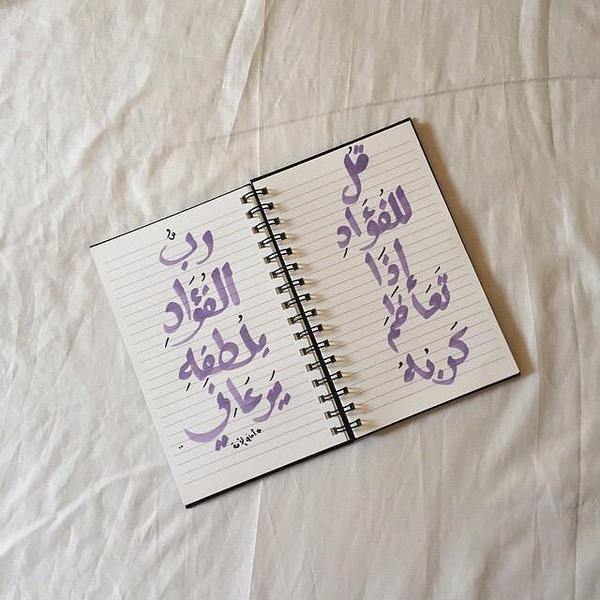 قُل
للفُؤَادِ
إذَا
تَعَاظَمَ
كَربُهُ
ربُّ
الفُؤَادِ
بِلُطفِهِ
يَرعَاني